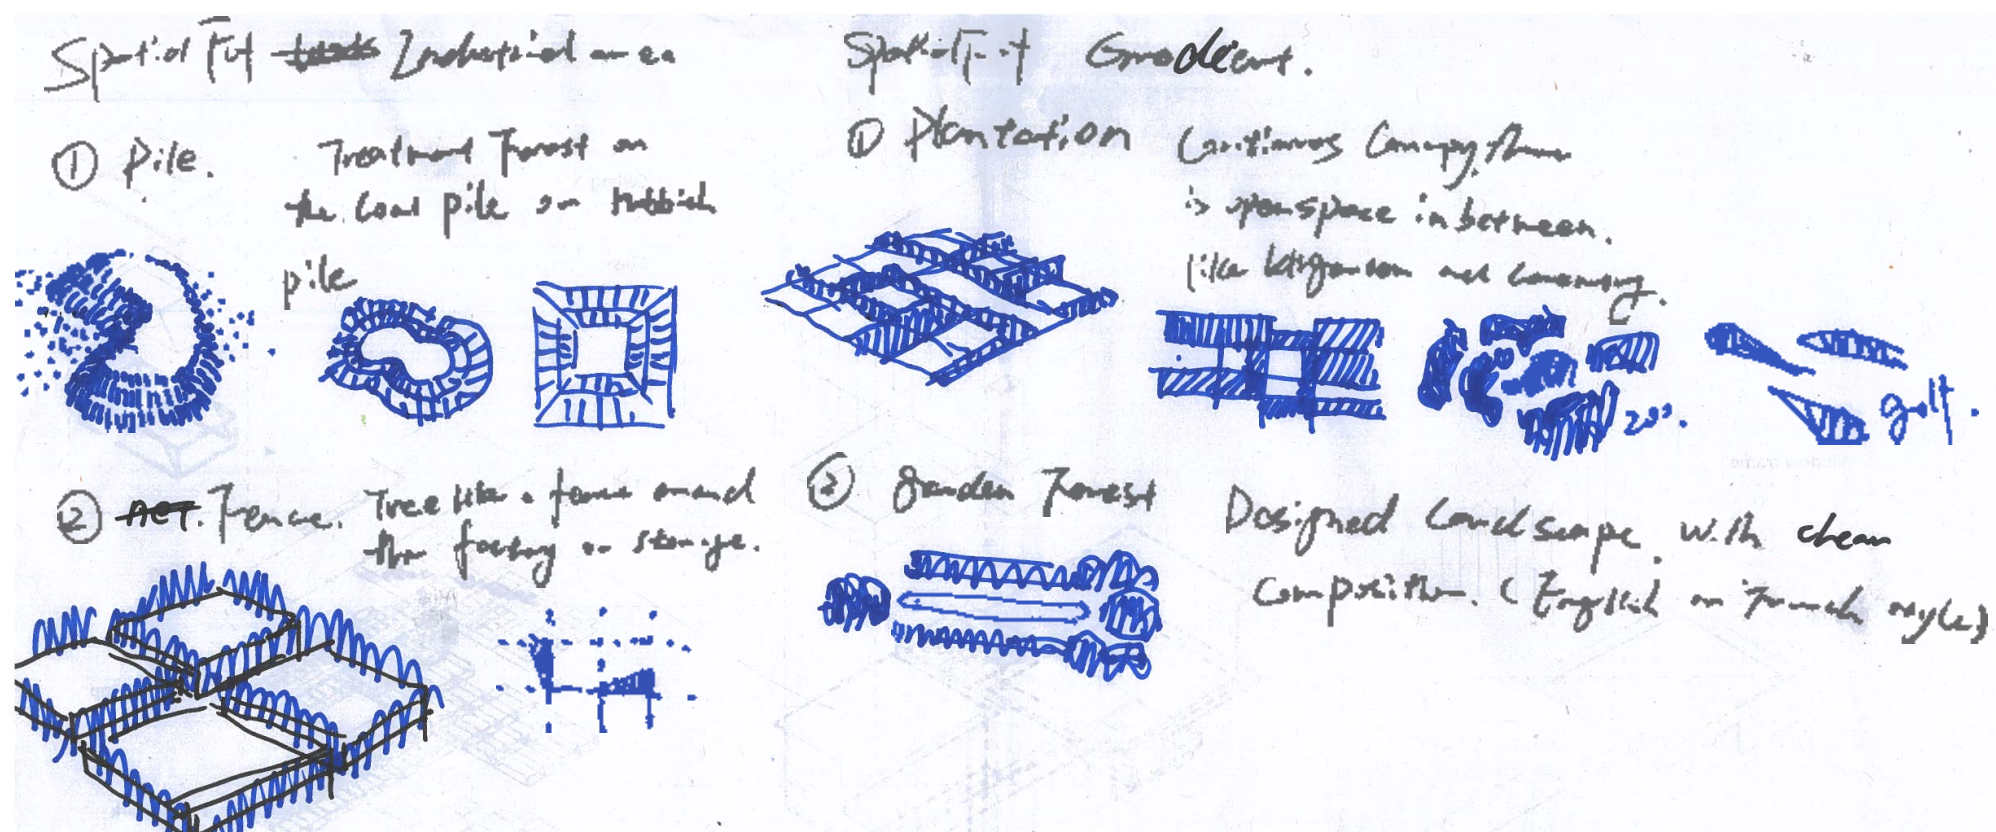 Spatial Fit Industrial area
① Pile.
Treatment Forest on
the Coal pile or rubbish
pile
② Fence.
Tree like a fence around
the factory or storage.
Spatial Fit Gradient.
① Plantation
Continuous Canopy, there
is open space in between.
like and
zoo.
golf.
② Garden Forest
Designed Landscape with clean
Composition. (English or French style)